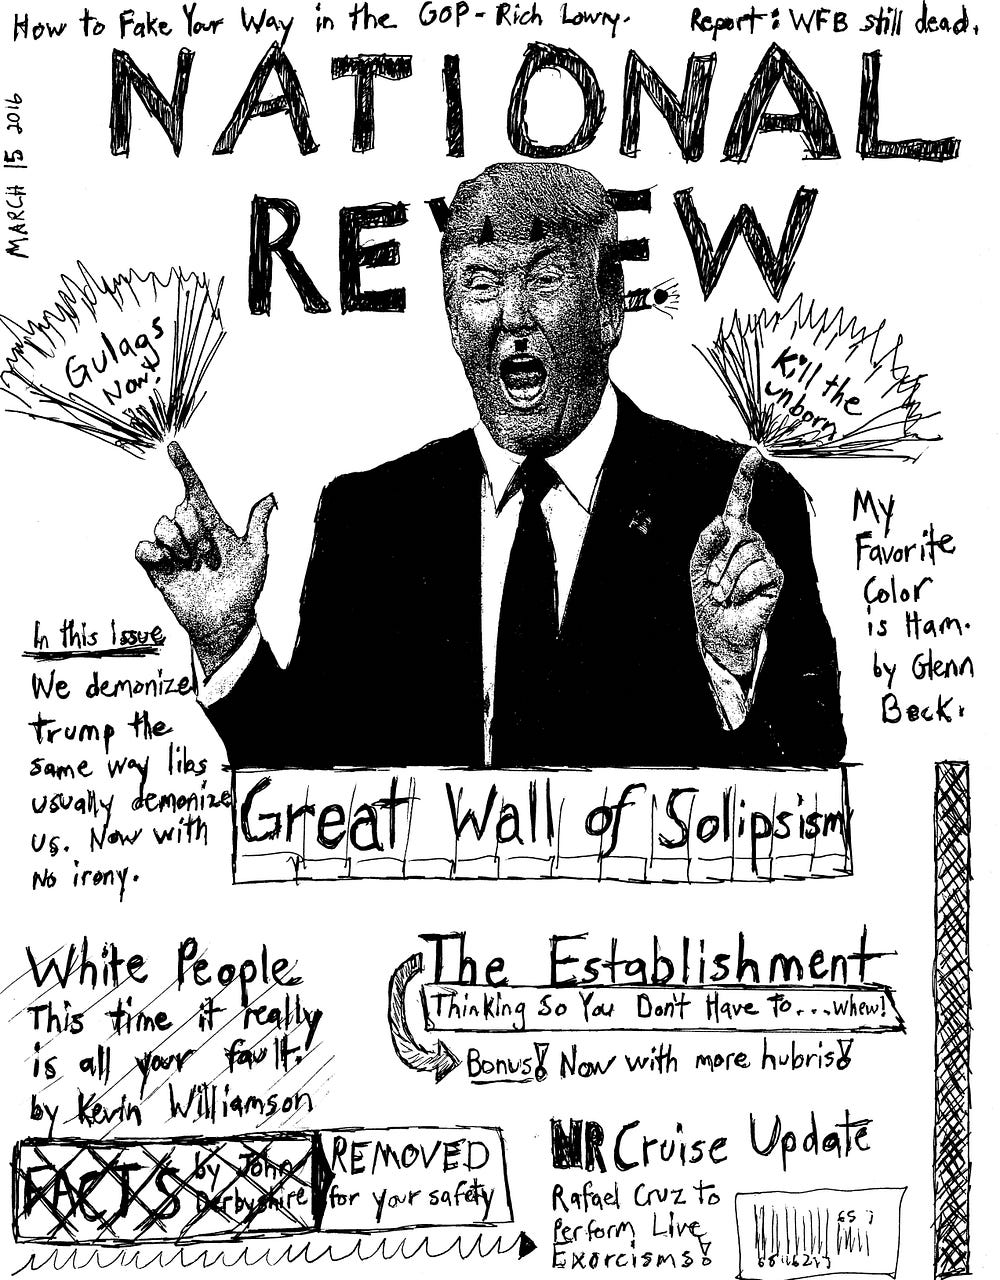 How to Fake Your Way in the GOP - Rich Lowry.
Report: WFB still dead.
MARCH 15 2016
NATIONAL
REVIEW
Gulags
Now!
Kill the
unborn
My
Favorite
Color
is Ham.
by Glenn
Beck.
In this Issue
We demonize
Trump the
same way libs
usually demonize
us. Now with
no irony.
Great Wall of Solipsism
White People
This time it really
is all your fault.
by Kevin Williamson
The Establishment
Thinking So You Don't Have to...whew!
Bonus! Now with more hubris!
FACTS by John
Derbyshire
REMOVED
for your safety
NR Cruise Update
Rafael Cruz to
Perform Live
Exorcisms!